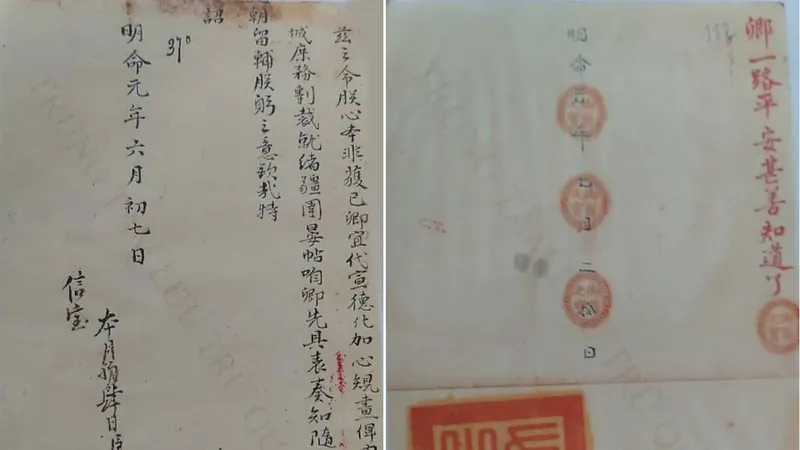 茲之令朕心本非獲已卿宜代宣德化加心規畫俾
城庶務剸裁就緒疆圉晏帖咱卿先具表奏知隨
朝留輔朕躬之意欽哉特
詔
37°
明命元年六月初七日
信宝
本月拾肆日臣
卿一路平安甚善知道了
明命元年七月二拾日